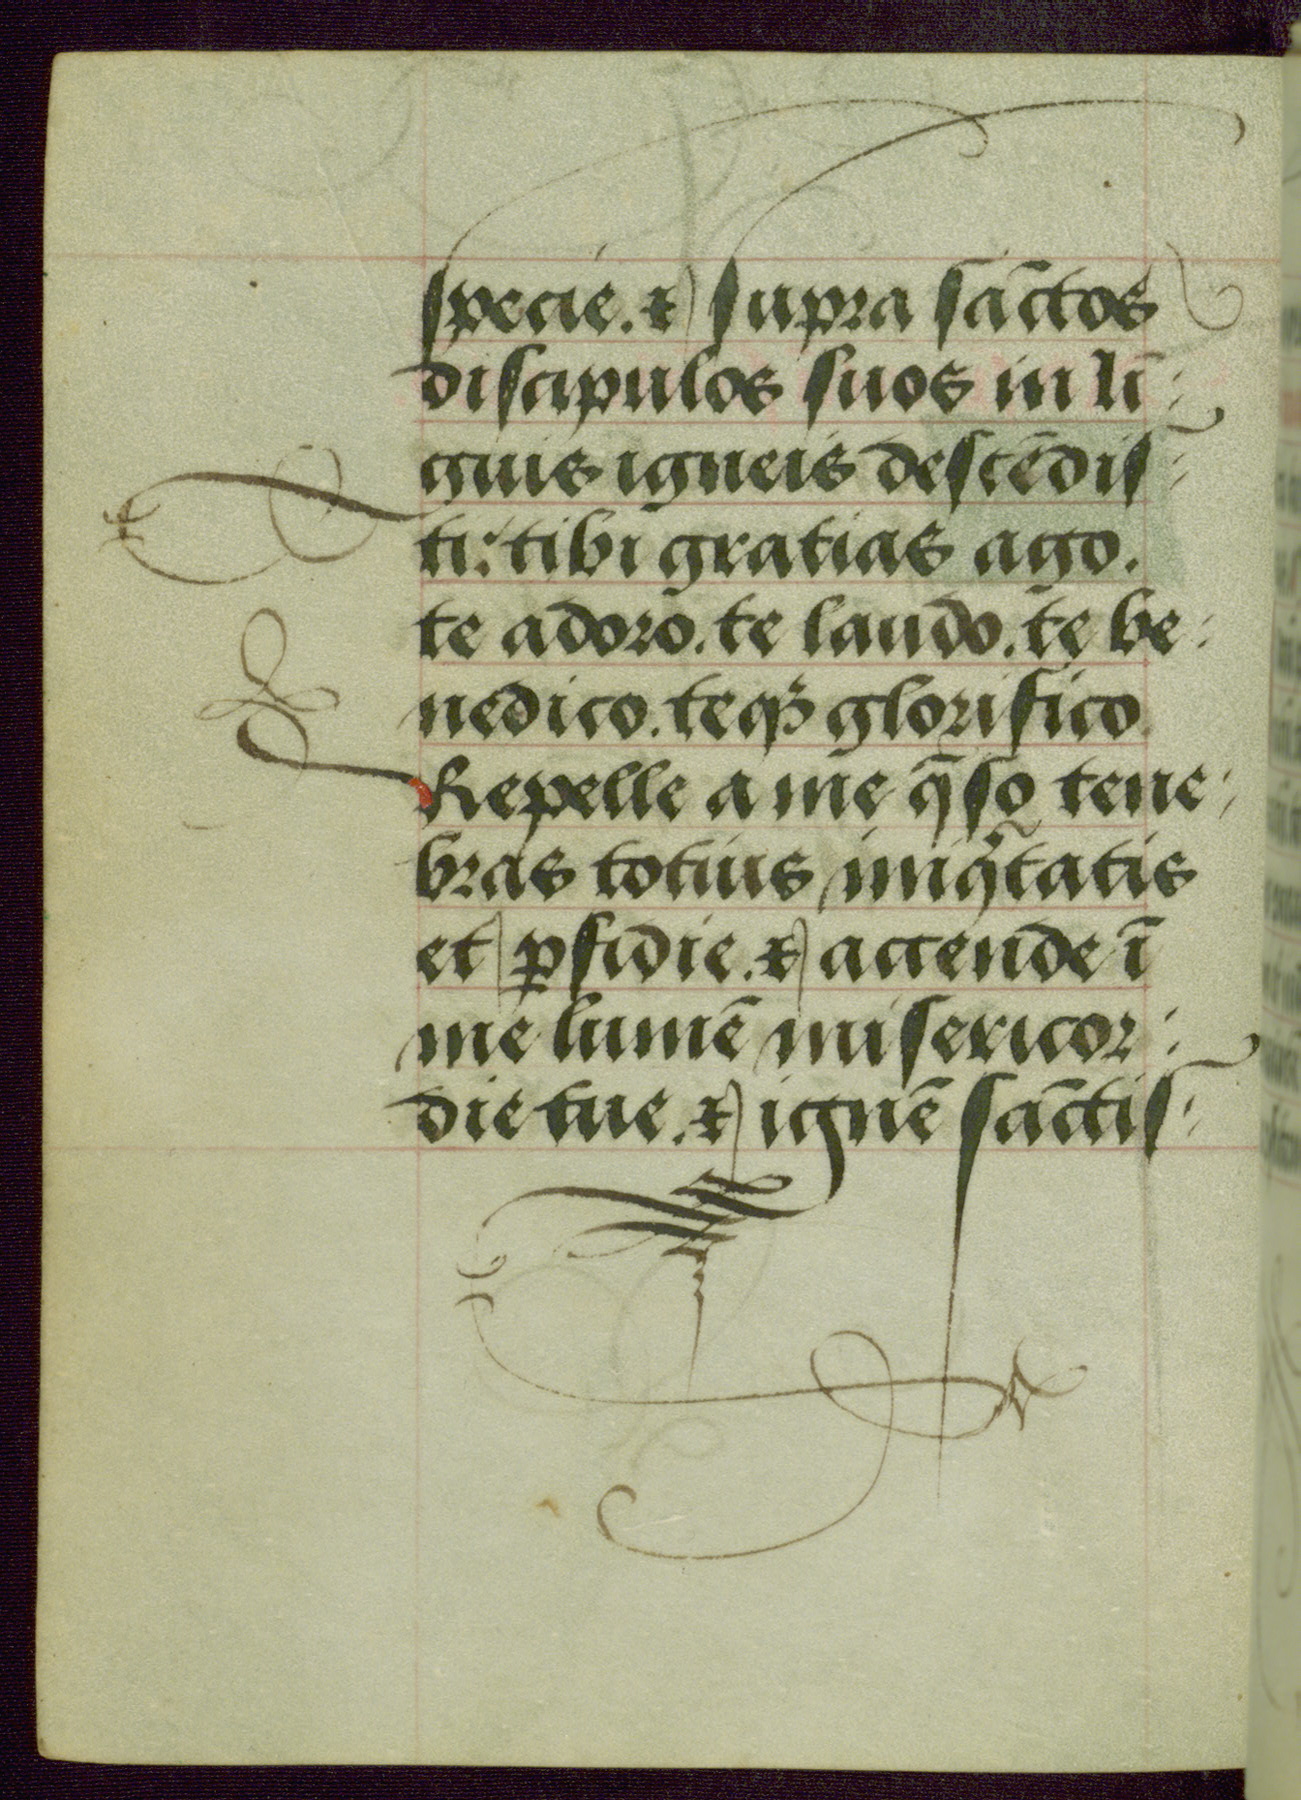 specie. ⁊ supra sāctos
discipulos suos in lī:
guis igneis descēdis-
ti: tibi gratias ago.
te adoro. te laudo. te be:
nedico. teqꝫ glorifico.
Repelle a me q̄so tene:
bras totius iniqͥtatis
et ꝑfidie. ⁊ accende ī
me lumē misericor:
die tue. ⁊ ignē sāctis-